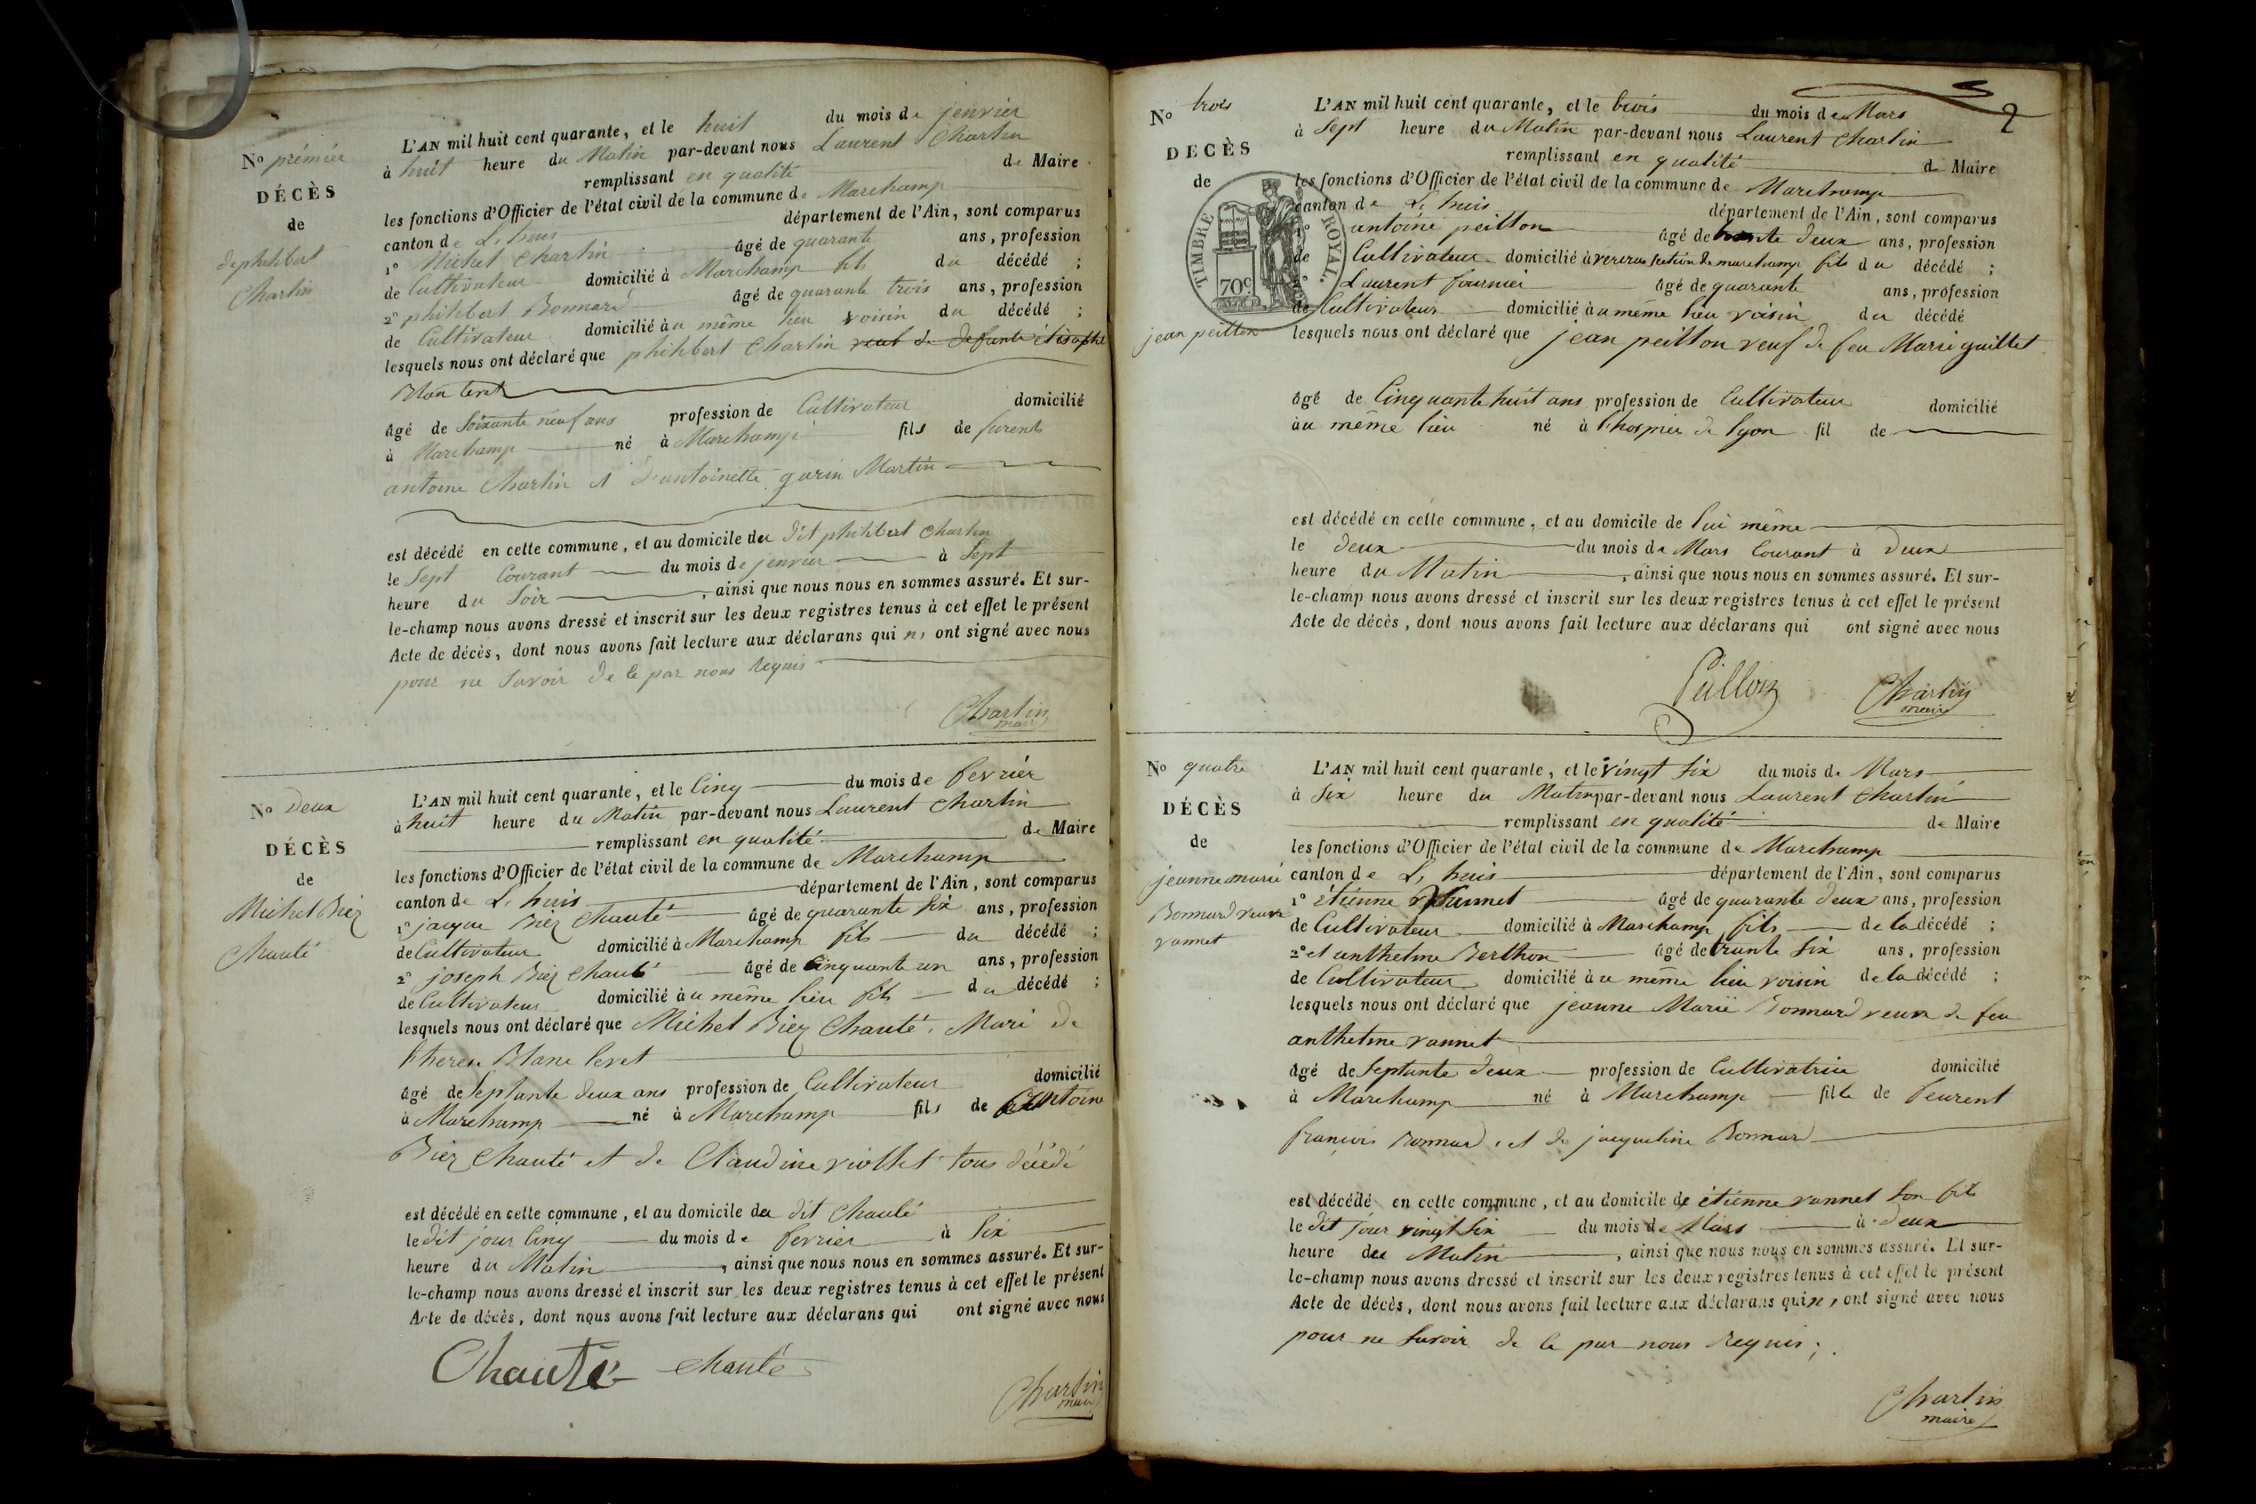 No prémiér
DÉCÈS
de
de philibert
Chartin
L'AN mil huit cent quarante, et le huit du mois de jenvier
à huit heure du Matin par-devant nous Laurent Chartin
remplissant en qualité de Maire
les fonctions d'Officier de l'état civil de la commune de Marchamp
canton de L, huis département de l'Ain, sont comparus
1º Michel Chartin âgé de quarante ans, profession
de Cultivateur domicilié à Marchamp fils du décédé ;
2º philibert Bonnard âgé de quarante trois ans, profession
de Cultivateur domicilié àu même lieu voisin du décédé ;
lesquels nous ont déclaré que philibert Chartin veuf de defunte
âgé de Soixante neuf ans profession de Cultivateur domicilié
à Marchamp né à Marchamp fils de furent
antoine Chartin et d'antoinette garin Martin
est décédé en cette commune, et au domicile du dit philibert Chartin
le Sept Courant du mois de jenvier à Sept
heure du Soir , ainsi que nous nous en sommes assuré. Et sur-
le-champ nous avons dressé et inscrit sur les deux registres tenus à cet effet le présent
Acte de décès, dont nous avons fait lecture aux déclarans qui n, ont signé avec nous
pour ne Savoir de ce par nous Requis
Chartin
maire
No Deux
DÉCÈS
de
Michel Biez
Chanté
L'AN mil huit cent quarante, et le Cinq du mois de fevriér
à huit heure du Matin par-devant nous Laurent Chartin
remplissant en qualité de Maire
les fonctions d'Officier de l'état civil de la commune de Marchamp
canton de L, huis département de l'Ain, sont comparus
1º jacque Biez Chanté âgé de quarante Six ans, profession
de Cultivateur domicilié à Marchamp fils du décédé ;
2º joseph Biez Chanté âgé de Cinquante un ans, profession
de Cultivateur domicilié àu même lieu fils du décédé ;
lesquels nous ont déclaré que Michel Biez Chanté, Mari de
therese Blanc
âgé de Septante deux ans profession de Cultivateur domicilié
à Marchamp né à Marchamp fils de antoine
Biez Chanté et de Claudine viollet tous décédé
est décédé en cette commune, et au domicile du dit Chanté
le dit jour Cinq du mois de fevrier à Six
heure du Matin , ainsi que nous nous en sommes assuré. Et sur-
le-champ nous avons dressé et inscrit sur les deux registres tenus à cet effet le présent
Acte de décès, dont nous avons fait lecture aux déclarans qui ont signé avec nous
Chanté Chanté
Chartin
maire
2
No trois
DECÈS
de
jean peillon
TIMBRE ROYAL.
70c
L'AN mil huit cent quarante, et le trois du mois de Mars
à Sept heure du Matin par-devant nous Laurent Chartin
remplissant en qualité de Maire
les fonctions d'Officier de l'état civil de la commune de Marchamp
canton de L, huis département de l'Ain, sont comparus
1º antoine peillon âgé de trente deux ans, profession
de Cultivateur domicilié à section de marchamp fils du décédé ;
2º Laurent fournier âgé de quarante ans, profession
de Cultivateur domicilié àu même lieu voisin du décédé
lesquels nous ont déclaré que jean peillon veuf de feu Marie guillet
âgé de Cinquante huit ans profession de Cultivateur domicilié
àu même lieu né à l'hospice de lyon fil de
est décédé en cette commune, et au domicile de lui même
le deux du mois de Mars Courant à deux
heure du Matin , ainsi que nous nous en sommes assuré. Et sur-
le-champ nous avons dressé et inscrit sur les deux registres tenus à cet effet le présent
Acte de décès, dont nous avons fait lecture aux déclarans qui ont signé avec nous
Chartin
maire
No quatre
DÉCÈS
de
jeanne marié
Bonnard veuve
vannet
L'AN mil huit cent quarante, et le vingt Six du mois de Mars
à Six heure du Matin par-devant nous Laurent Chartin
remplissant en qualité de Maire
les fonctions d'Officier de l'état civil de la commune de Marchamp
canton de L, huis département de l'Ain, sont comparus
1º étienne Vannet âgé de quarante deux ans, profession
de Cultivateur domicilié à Marchamp fils de la décédé ;
2º et anthelme Berthon âgé de trante Six ans, profession
de Cultivateur domicilié àu même lieu voisin de la décédé ;
lesquels nous ont déclaré que jeanne Marié Bonnard veuve de feu
anthelme vannet
âgé de Septante deux profession de Cultivatrice domicilié
à Marchamp né à Marchamp fille de feurent
françois Bonnard, et de jacqueline Bonnard
est décédé en cette commune, et au domicile de étienne vannet Son fils
le dit jour vingt Six du mois de Mars à deux
heure du Matin , ainsi que nous nous en sommes assuré. Et sur-
le-champ nous avons dressé et inscrit sur les deux registres tenus à cet effet le présent
Acte de décès, dont nous avons fait lecture aux déclarans qui n, ont signé avec nous
pour ne Savoir de ce par nous Requis ;
Chartin
maire